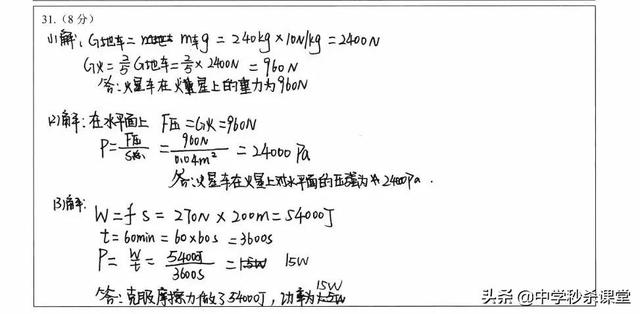 31.(8分)
(1)解:G地车= m车g = 240kg×10N/kg=2400N
G火=2/5G地车=2/5×2400N=960N
答:火星车在火星上的重力为960N
(2)解:在水平面上 F压=G火=960N
P=F压/S总=960N/0.04m²=24000Pa
答:火星车在火星上对水平面的压强为24000Pa.
(3)解:
W=fs=270N×200m=54000J
t=60min=60×60s=3600s
P=W/t=54000J/3600s=15W
答:克服摩擦力做了54000J,功率为15W
头条@中学秒杀课堂